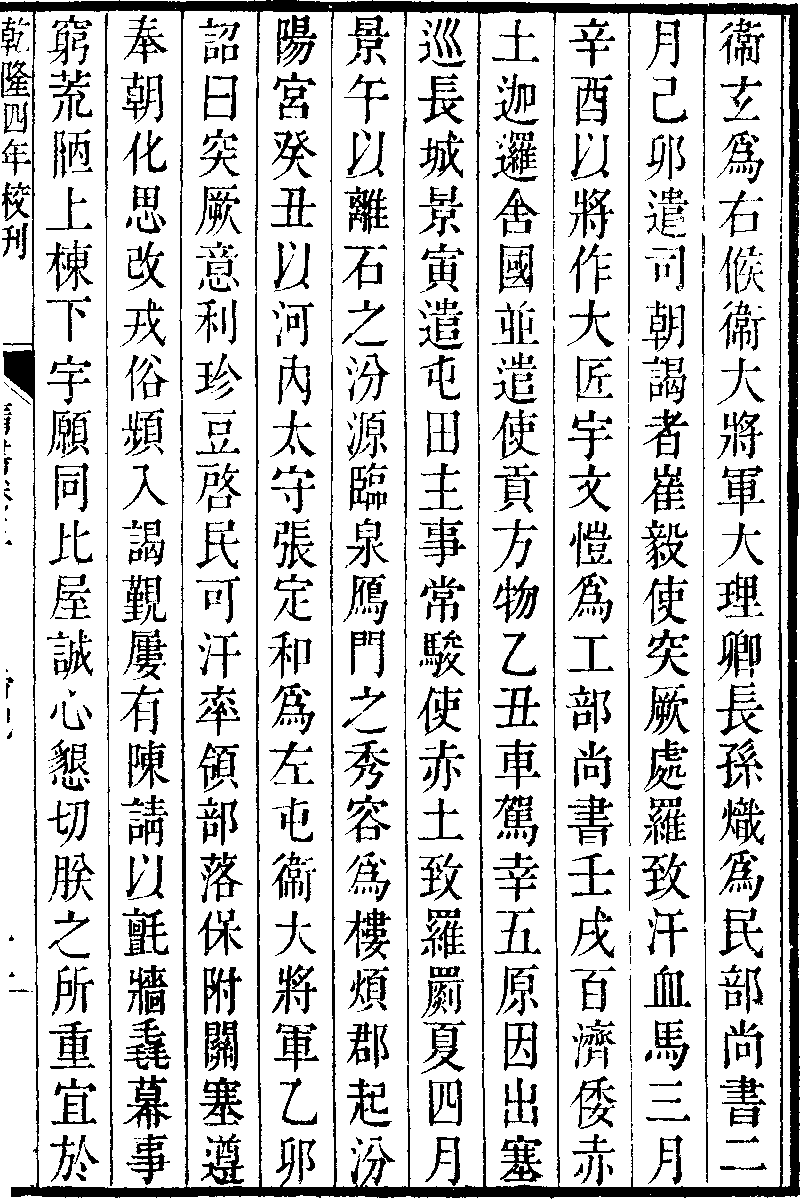 衞玄爲右候衞大將軍大理卿長孫熾爲民部尚書二
月己卯遣司朝謁者崔毅使突厥處羅致汗血馬三月
辛酉以將作大匠宇文愷爲工部尚書壬戌百濟倭赤
土迦邏舍國並遣使貢方物乙丑車駕幸五原因出塞
巡長城景寅遣屯田主事常駿使赤土致羅罽夏四月
景午以離石之汾源臨泉鴈門之秀容爲樓煩郡起汾
陽宮癸丑以河內太守張定和爲左屯衞大將軍乙卯
詔曰突厥意利珍豆啓民可汗率領部落保附關塞遵
奉朝化思改戎俗頻入謁覲屢有陳請以氈牆毳幕事
窮荒陋上棟下宇願同比屋誠心懇切朕之所重宜於
乾隆四年校刊